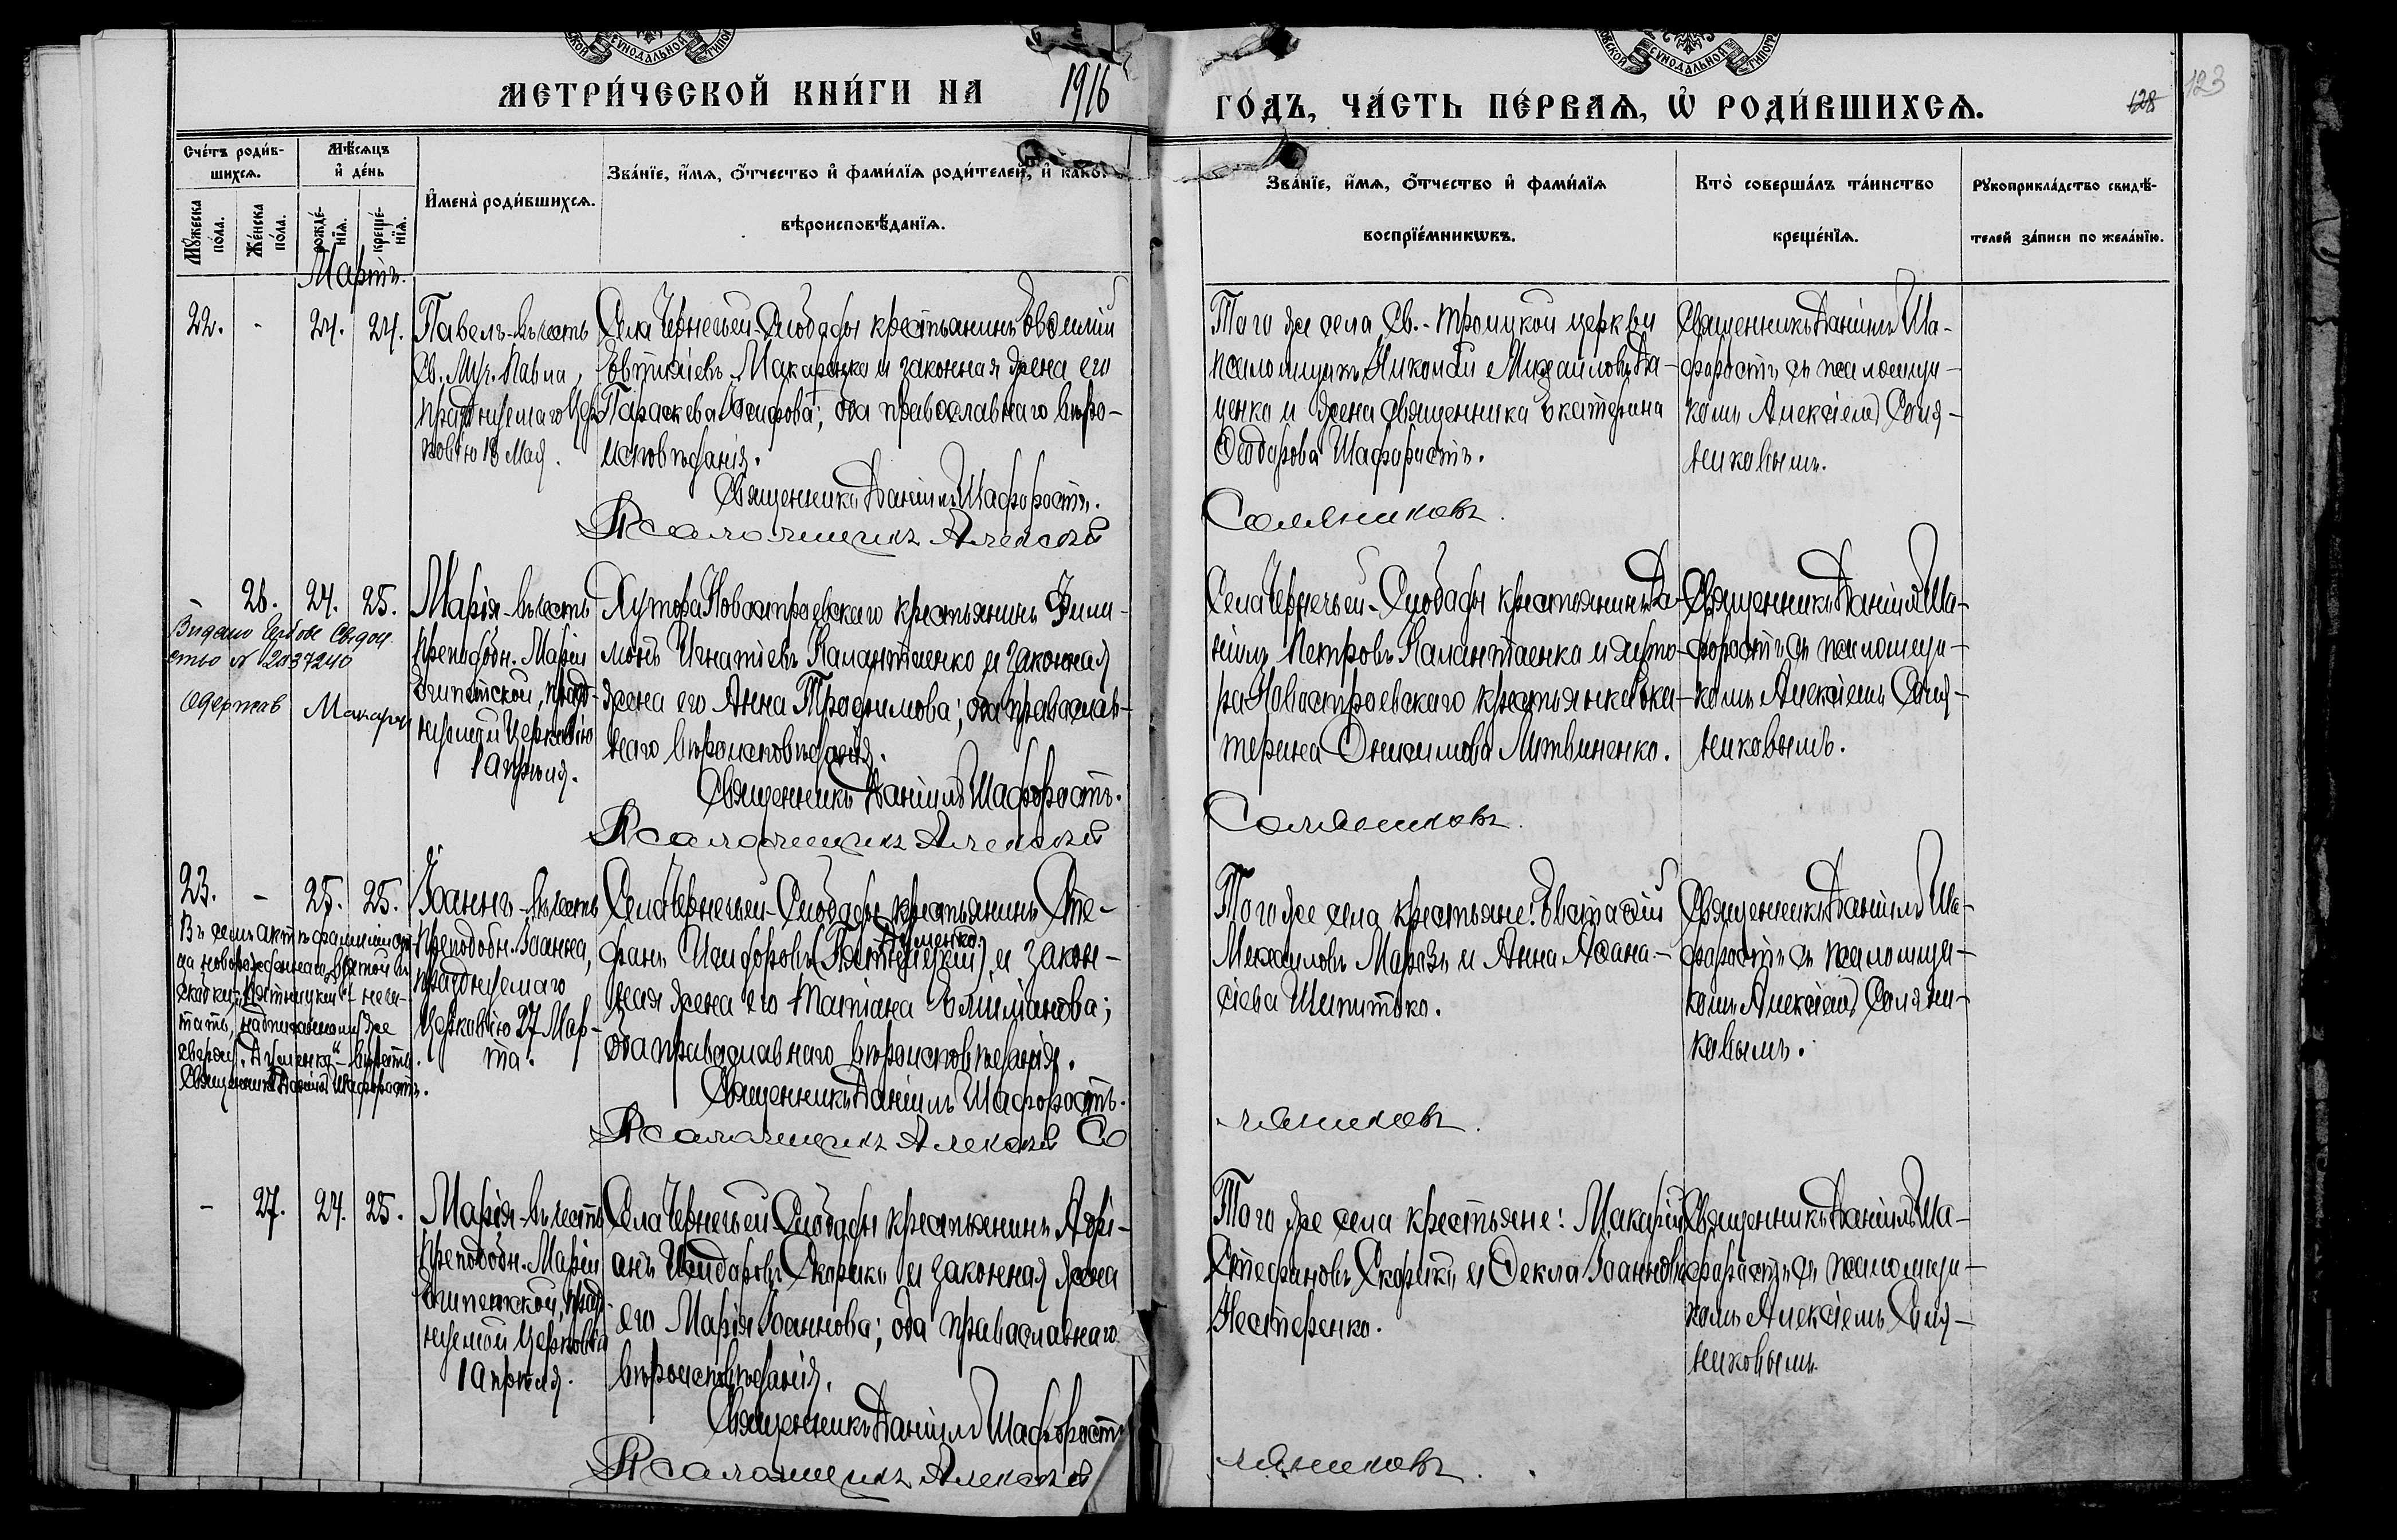 МЕТРИ́ЧЕСКОЙ КНИ́ГИ НА 1916 ГО́ДЪ, ЧА́СТЬ ПЕ́РВАЯ, Ѡ҆ РОДИ́ВШИХСЯ.
128 123
Сче́тъ роди́в-
шихся.
Мѣ́сяцъ
и҆ де́нь
Мꙋ́жеска
по́ла.
Же́нска
по́ла.
рожде́-
нїя.
креще́-
нїя.
И҆мена̀ роди́вшихся.
Зва́нїе, и҆́мя, ѻ҆́тчество и҆ фами́лїя роди́телей, и҆ како́го
вѣроисповѣ́данїя.
Зва́нїе, и҆́мя, ѻ҆́тчество и҆ фами́лїя
воспрїе́мникѡвъ.
Кто̀ соверша́лъ та́инство
креще́нїя.
Рꙋкоприкла́дство свидѣ́-
телей за́писи по жела́нїю.
Мартъ.
22. - 24. 24.
Павелъ-въ честь
Св. Муч. Павла,
празднуемаго Цер
ковію 18 Мая.
Села Чернечьей-Слободы крестьянинъ Евѳимій
Евтихіевъ Макаренко и законная жена его
Параскева Іосифова; оба православнаго вѣро-
исповѣданія.
Священникъ Даніилъ Шафоростъ.
Псаломщикъ Алексѣй
Того же села Св.-Троицкой церкви
псаломщикъ Николай Михайловъ Да-
ценко и жена священника Екатерина
Ѳеодорова Шафоростъ.
Соляниковъ.
Священникъ Даніилъ Ша-
форостъ съ псаломщи-
комъ Алексіемъ Соля-
никовымъ.
- 26. 24. 25.
Видано
№ 2037240
Одержав Макарен
Марія-въ честь
Преподобн. Маріи
Египетской, празд-
нуемой Церковію
1 Апрѣля.
Хутора Новостроевскаго крестьянинъ Фили-
монъ Игнатіевъ Калантаенко и законная
жена его Анна Трофимова; оба православ-
наго вѣроисповѣданія.
Священникъ Даніилъ Шафоростъ.
Псаломщикъ Алексѣй
Села Чернечьей-Слободы крестьянинъ Да-
ніилъ Петровъ Калантаенко и хуто-
ра Новостроевскаго крестьянка Ека-
терина Онисимова Литвиненко.
Соляниковъ.
Священникъ Даніилъ Ша-
форостъ съ псаломщи-
комъ Алексіемъ Соля-
никовымъ.
23. - 25. 25.
Въ семъ актѣ фамилію от-
ца новорожденнаго, взятой въ
скобки, "Пятницкій" - не чи-
тать, надписанному же
сверху "Думенко" - вѣрить.
Священникъ Даніилъ Шафоростъ.
Іоаннъ-въ честь
Преподобн. Іоанна,
празднуемаго
Церковію 27 Мар-
та.
Села Чернечьей-Слободы крестьянинъ Сте-
Думенко
фанъ Исидоровъ (Пятницкій) и закон-
ная жена его Татіана Емиліанова;
оба православнаго вѣроисповѣданія.
Священникъ Даніилъ Шафоростъ.
Псаломщикъ Алексѣй Со
Того же села крестьяне: Евстаѳій
Михаиловъ Маразъ и Анна Аѳана-
сіева Шипитько.
ляниковъ.
Священникъ Даніилъ Ша-
форостъ съ псаломщи-
комъ Алексіемъ Соляни-
ковымъ.
- 27. 24. 25.
Марія-въ честь
Преподобн. Маріи
Египетской, празд-
нуемой Церковію
1 Апрѣля.
Села Чернечьей Слободы крестьянинъ Адрі-
анъ Исидоровъ Скорикъ и законная жена
его Марія Іоаннова; оба православнаго
вѣроисповѣданія.
Священникъ Даніилъ Шафоростъ
Псаломщикъ Алексѣй
Того же села крестьяне: Макарій
Стефановъ Скорикъ и Ѳекла Іоаннова
Нестеренко.
ляниковъ.
Священникъ Даніилъ Ша-
форостъ съ псаломщи-
комъ Алексіемъ Соля-
никовымъ.